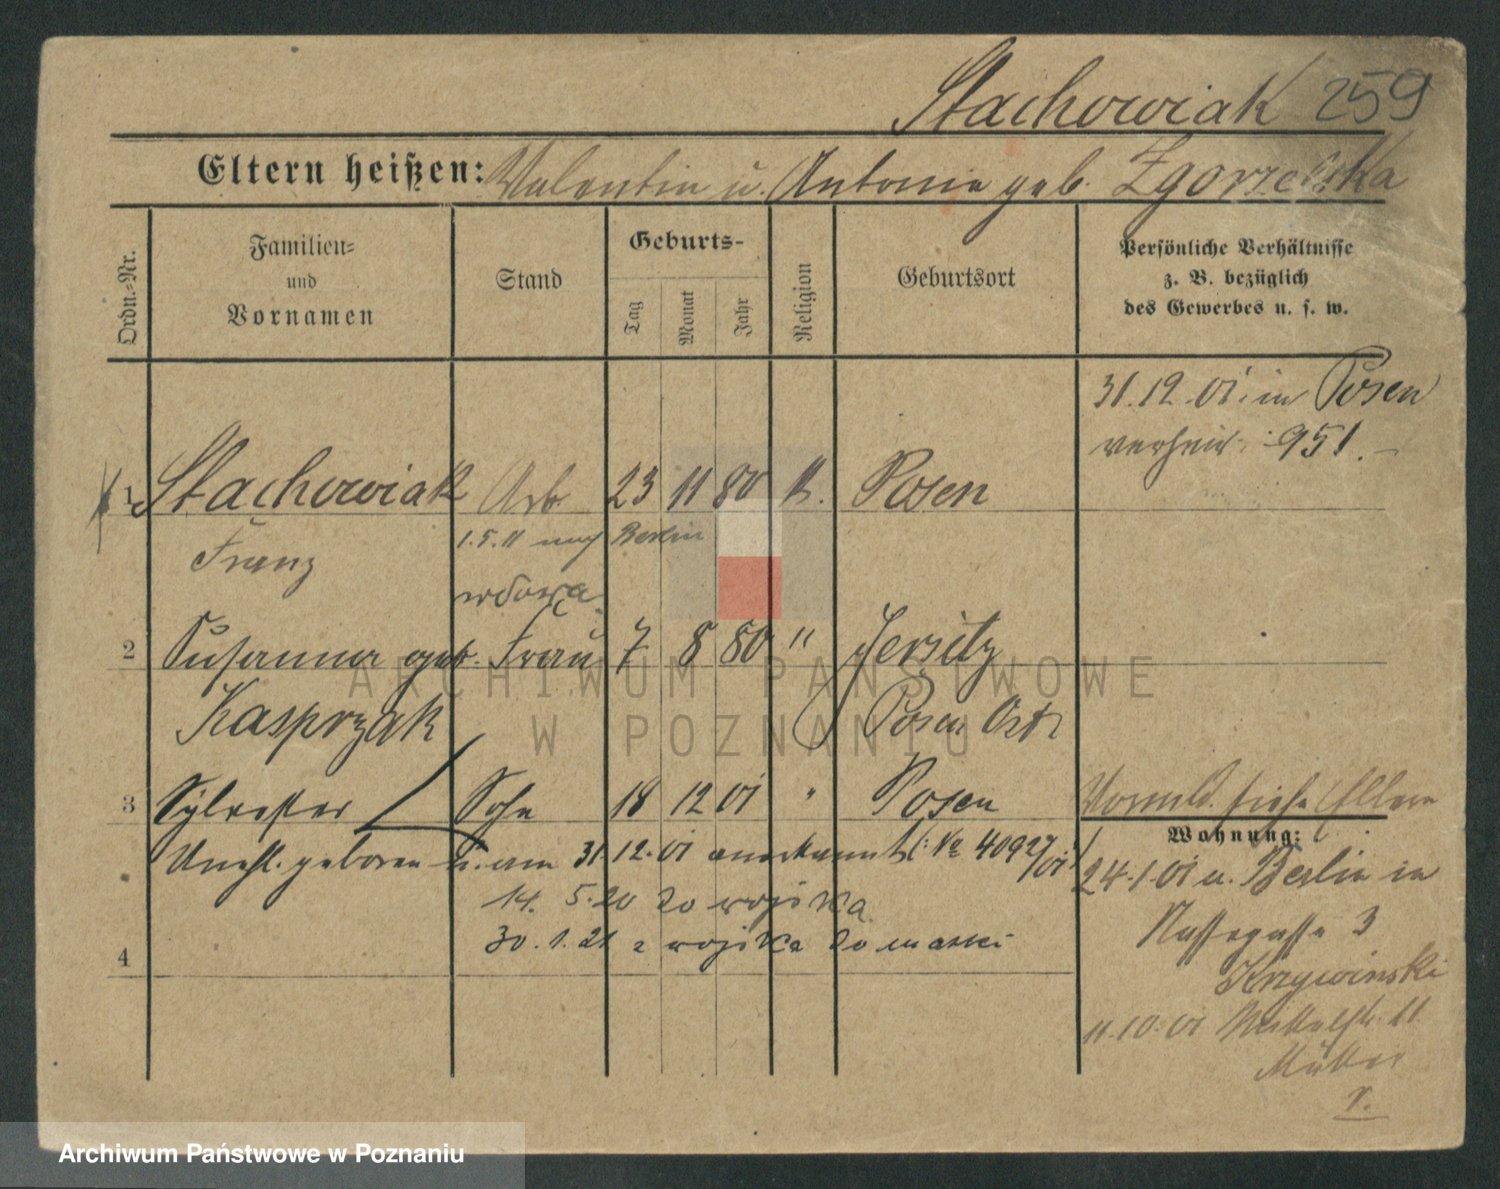 Stachowiak 259
Eltern heißen: Valentin u. Antonie geb. Zgorzelska
Ordn.-Nr.
Familien-
und
Vornamen
Stand
Geburts-
Tag
Monat
Jahr
Religion
Geburtsort
Persönliche Verhältnisse
z. B. bezüglich
des Gewerbes u. s. w.
31.12.01 in Posen
verheir. 951.-
1 Stachowiak Arb. 23 11 80 k. Posen
Franz
1.5.11 nach Berlin
wdowa
2 Susanna geb. Frau 7 8 80 " Jersitz
Kasprzak Posen Ost
3 Sylvester Sohn 18 12 01 " Posen
Vormld. siehe Eltern
Unehl. geboren u. am 31.12.01 anerkannt (: No 40927/01
14. 5.20 do wojska
30.1.21 z wojska do matki
4
Wohnung:
24.1.01 u. Berlin in
3
Krzywinski
11.10.01 11
ARCHIWUM PAŃSTWOWE
W POZNANIU
Archiwum Państwowe w Poznaniu